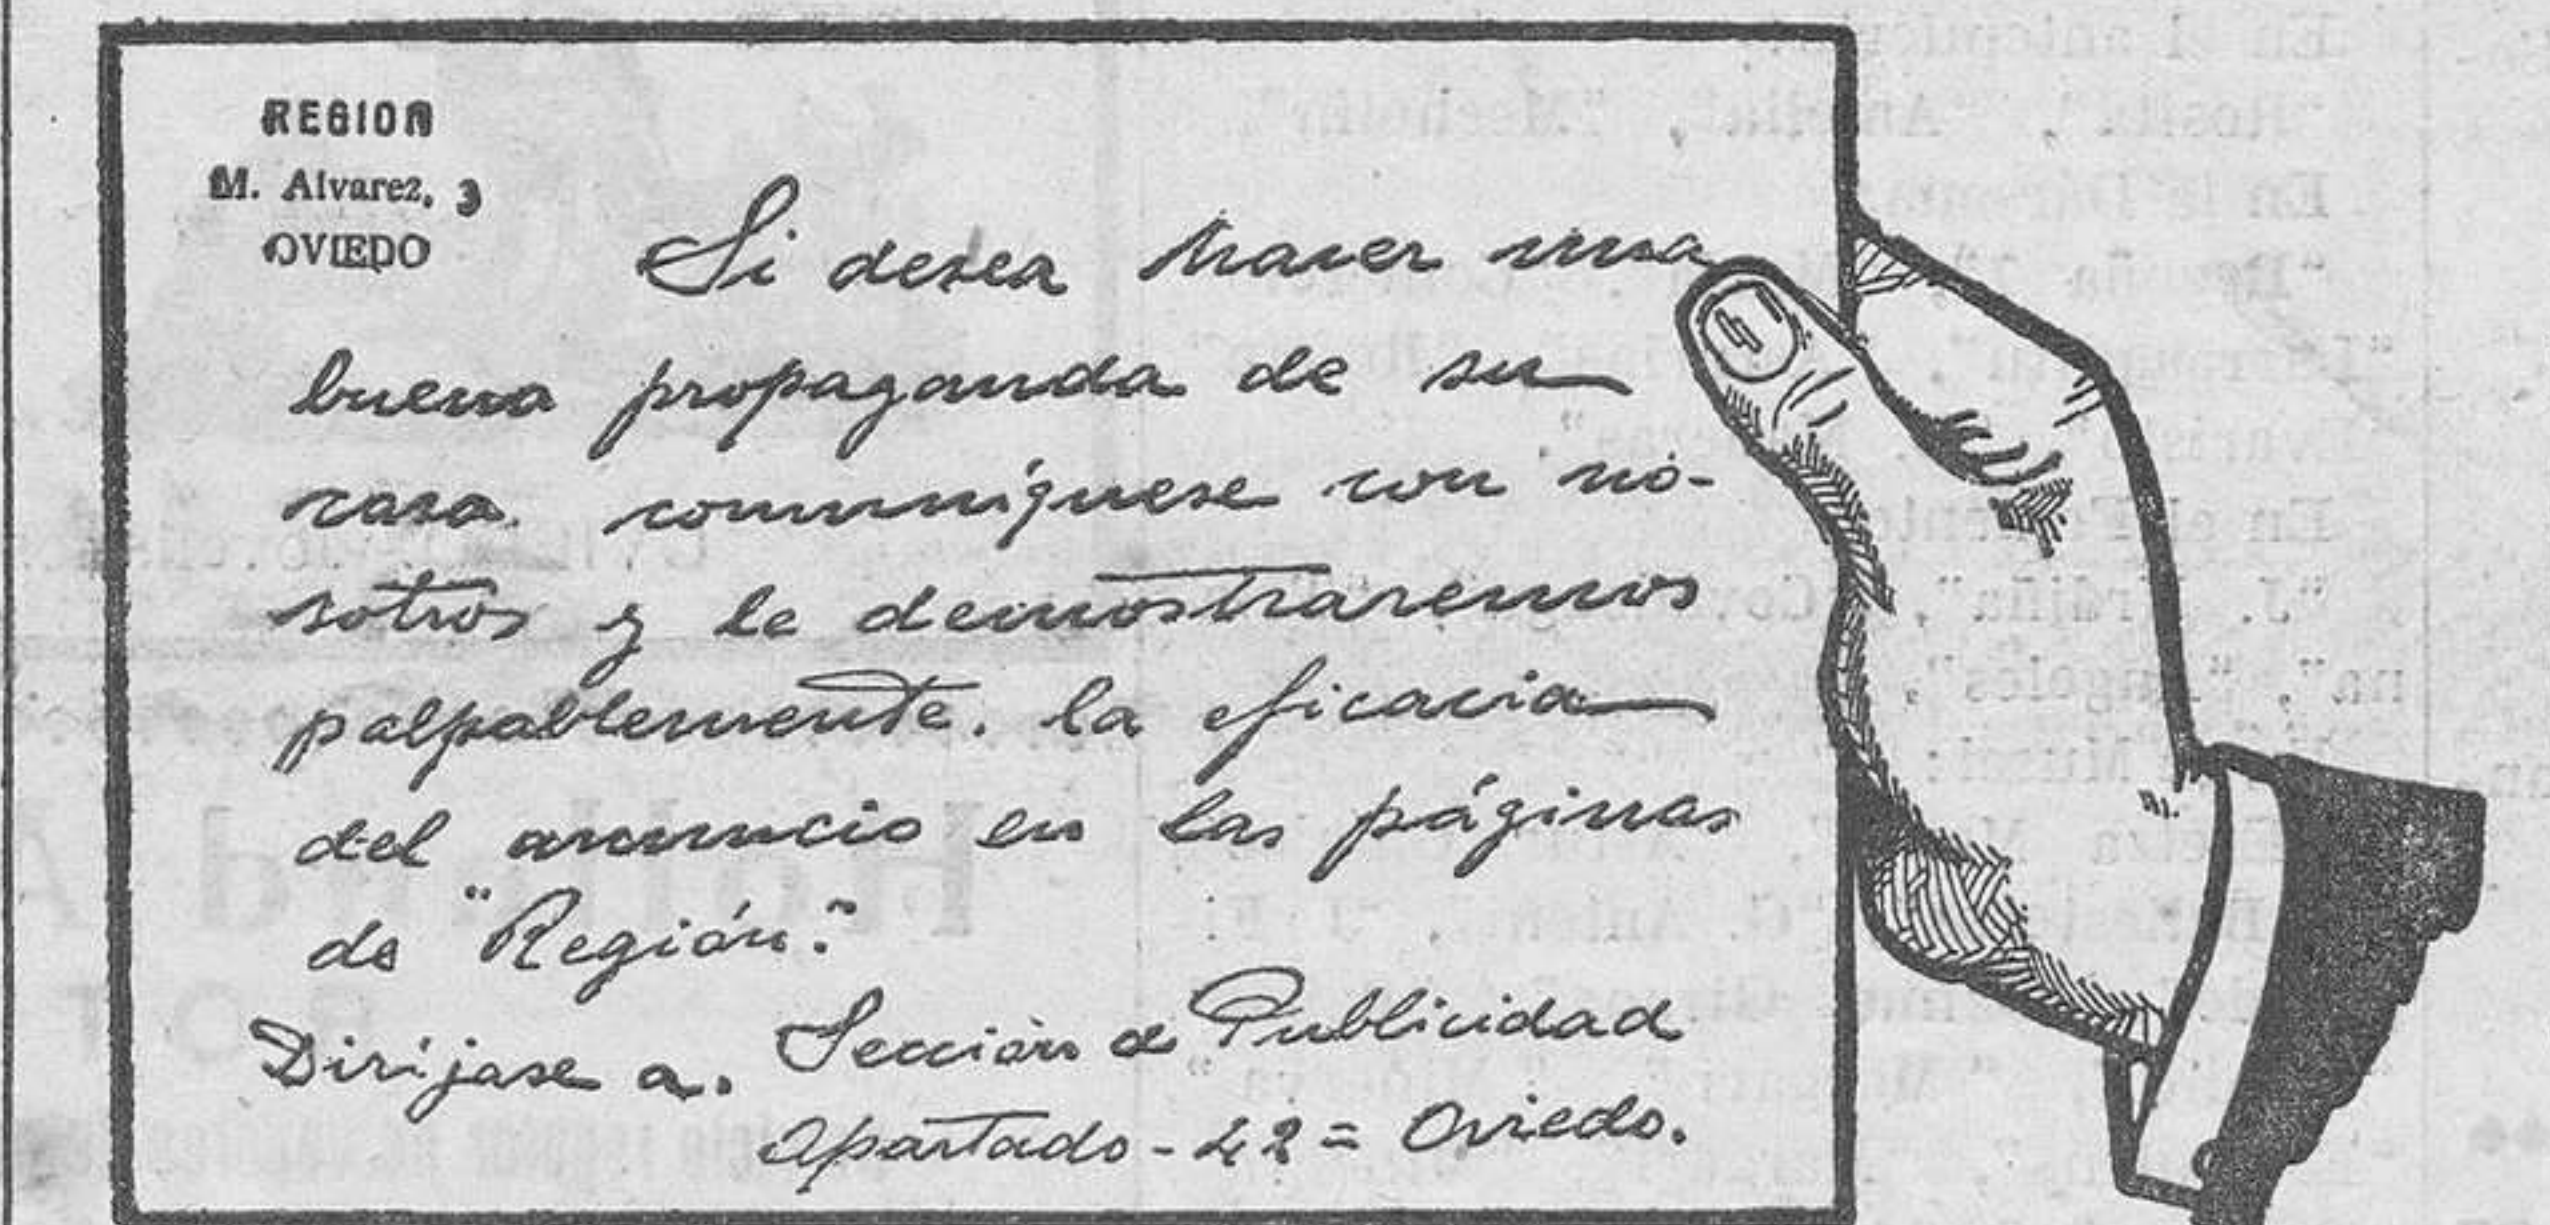 REGION
M. Alvarez, 3
OVIEDO
Si desea hacer una
buena propaganda de su
casa comuníquese con no-
sotros y le demostraremos
palpablemente. la eficacia
del anuncio en las páginas
de "Región".
Diríjase a. Sección de Publicidad
Apartado - 42 = Oviedo.